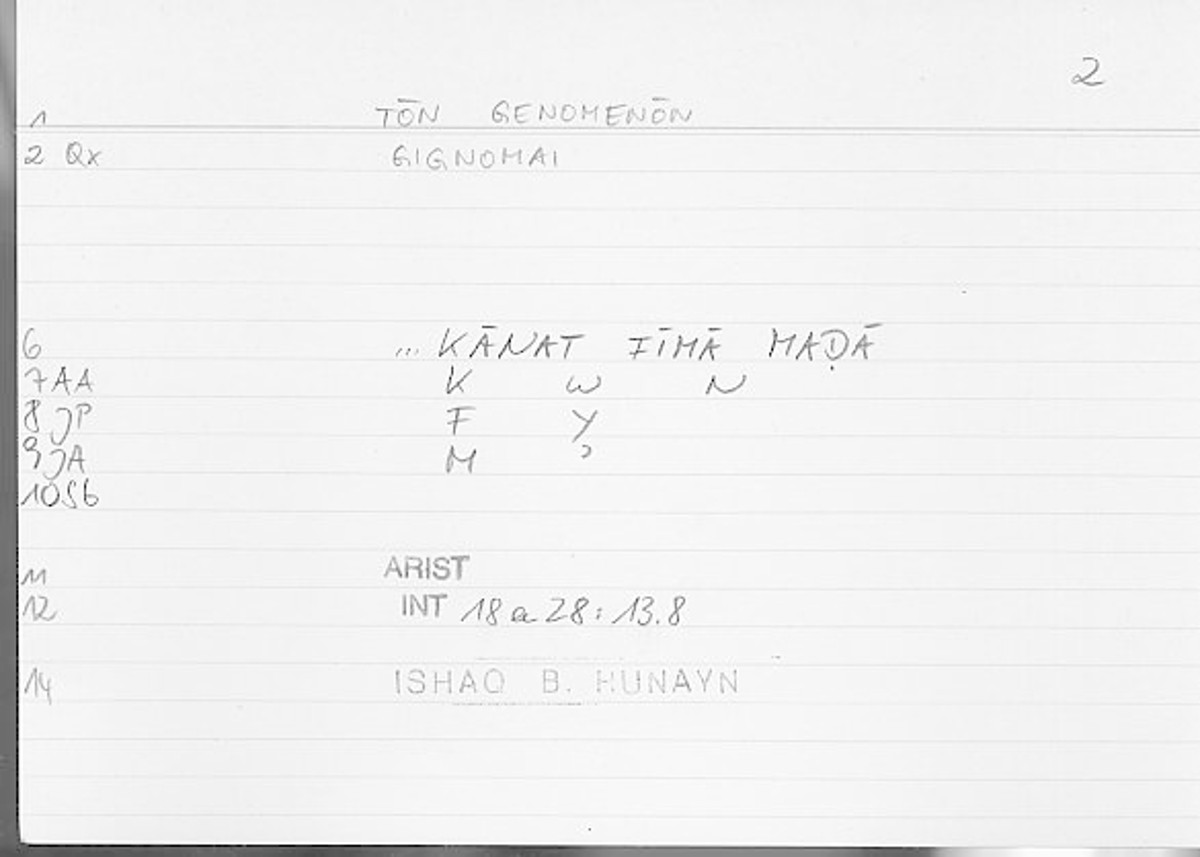 2
1 TŌN GENOMENŌN
2 Qx GIGNOMAI
6 ... KĀNAT FĪMĀ MAḌĀ
7 AA K W N
8 JP F Y
9 JA M ʾ
10 Sb
11 ARIST
12 INT 18 a 28 : 13.8
14 ISHAQ B. HUNAYN